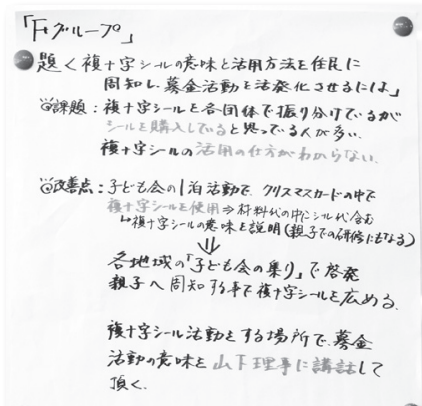 「Fグループ」
題く複十字シールの意味と活用方法を住民に
周知し、募金活動を活発化させるには」
課題：複十字シールを各団体で振り分けているが
シールを購入していると思っている人が多い。
複十字シールの活用の仕方がわからない。
改善点：子ども会の1泊活動で、クリスマスカードの中で
複十字シールを使用⇒材料代の中にシール代含む
↳複十字シールの意味を説明(親子での研修にもなる)
⇓
各地域の「子ども会の集り」で啓発
親子へ周知する事で複十字シールを広める。
複十字シール活動をする場所で、募金
活動の意味を山下理事に講話して
頂く。